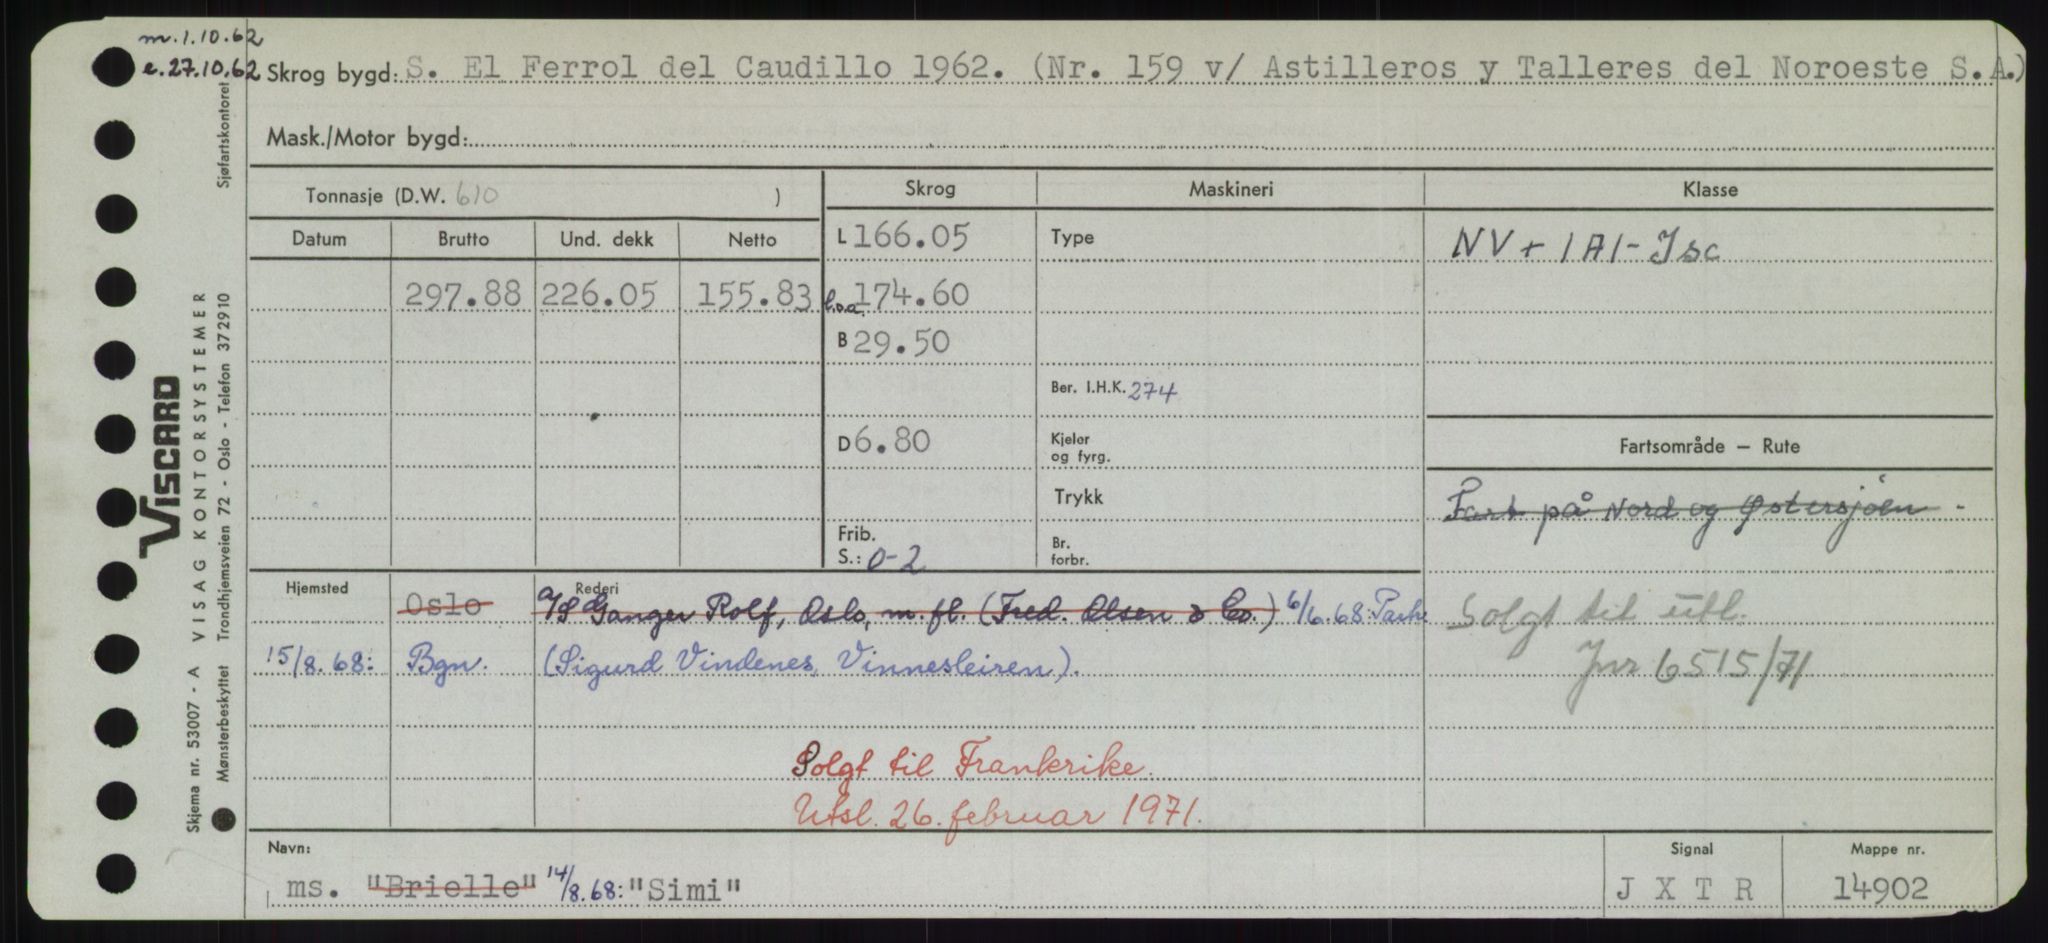 m.1.10.62
e.27.10.62 Skrog bygd: S. El Ferrol del Caudillo 1962. (Nr. 159 v/ Astilleros y Talleres del Noroeste S.A.)
Mask./Motor bygd:
Tonnasje (D.W. 610 )
Skrog Maskineri Klasse
Datum Brutto Und. dekk Netto
L 166.05 Type NV + 1A1 - Isc
297.88 226.05 155.83 l.o.a. 174.60
B 29.50
Ber. I.H.K. 274
D 6.80 Kjeler og fyrg.
Fartsområde — Rute
Trykk
Fart på Nord og Østersjøen -
Frib.
S.: 0-2 Br. forbr.
Hjemsted Rederi
Oslo A/S Ganger Rolf, Oslo, m. fl. (Fred. Olsen & Co.) 6/6.68: Partr.
Solgt til utl.
15/8.68: Bgn. (Sigurd Vindenes, Vinnesleiren).
Jnr 6515/71
Solgt til Frankrike.
Utsl. 26. februar 1971.
Navn: Signal Mappe nr.
ms. "Brielle" 14/8.68: "Simi" J X T R 14902
Sjøfartskontoret
VISCARD
VISAG KONTORSYSTEMER
Trondhjemsveien 72 - Oslo - Telefon 372910
Skjema nr. 53007 - A
Mønsterbeskyttet